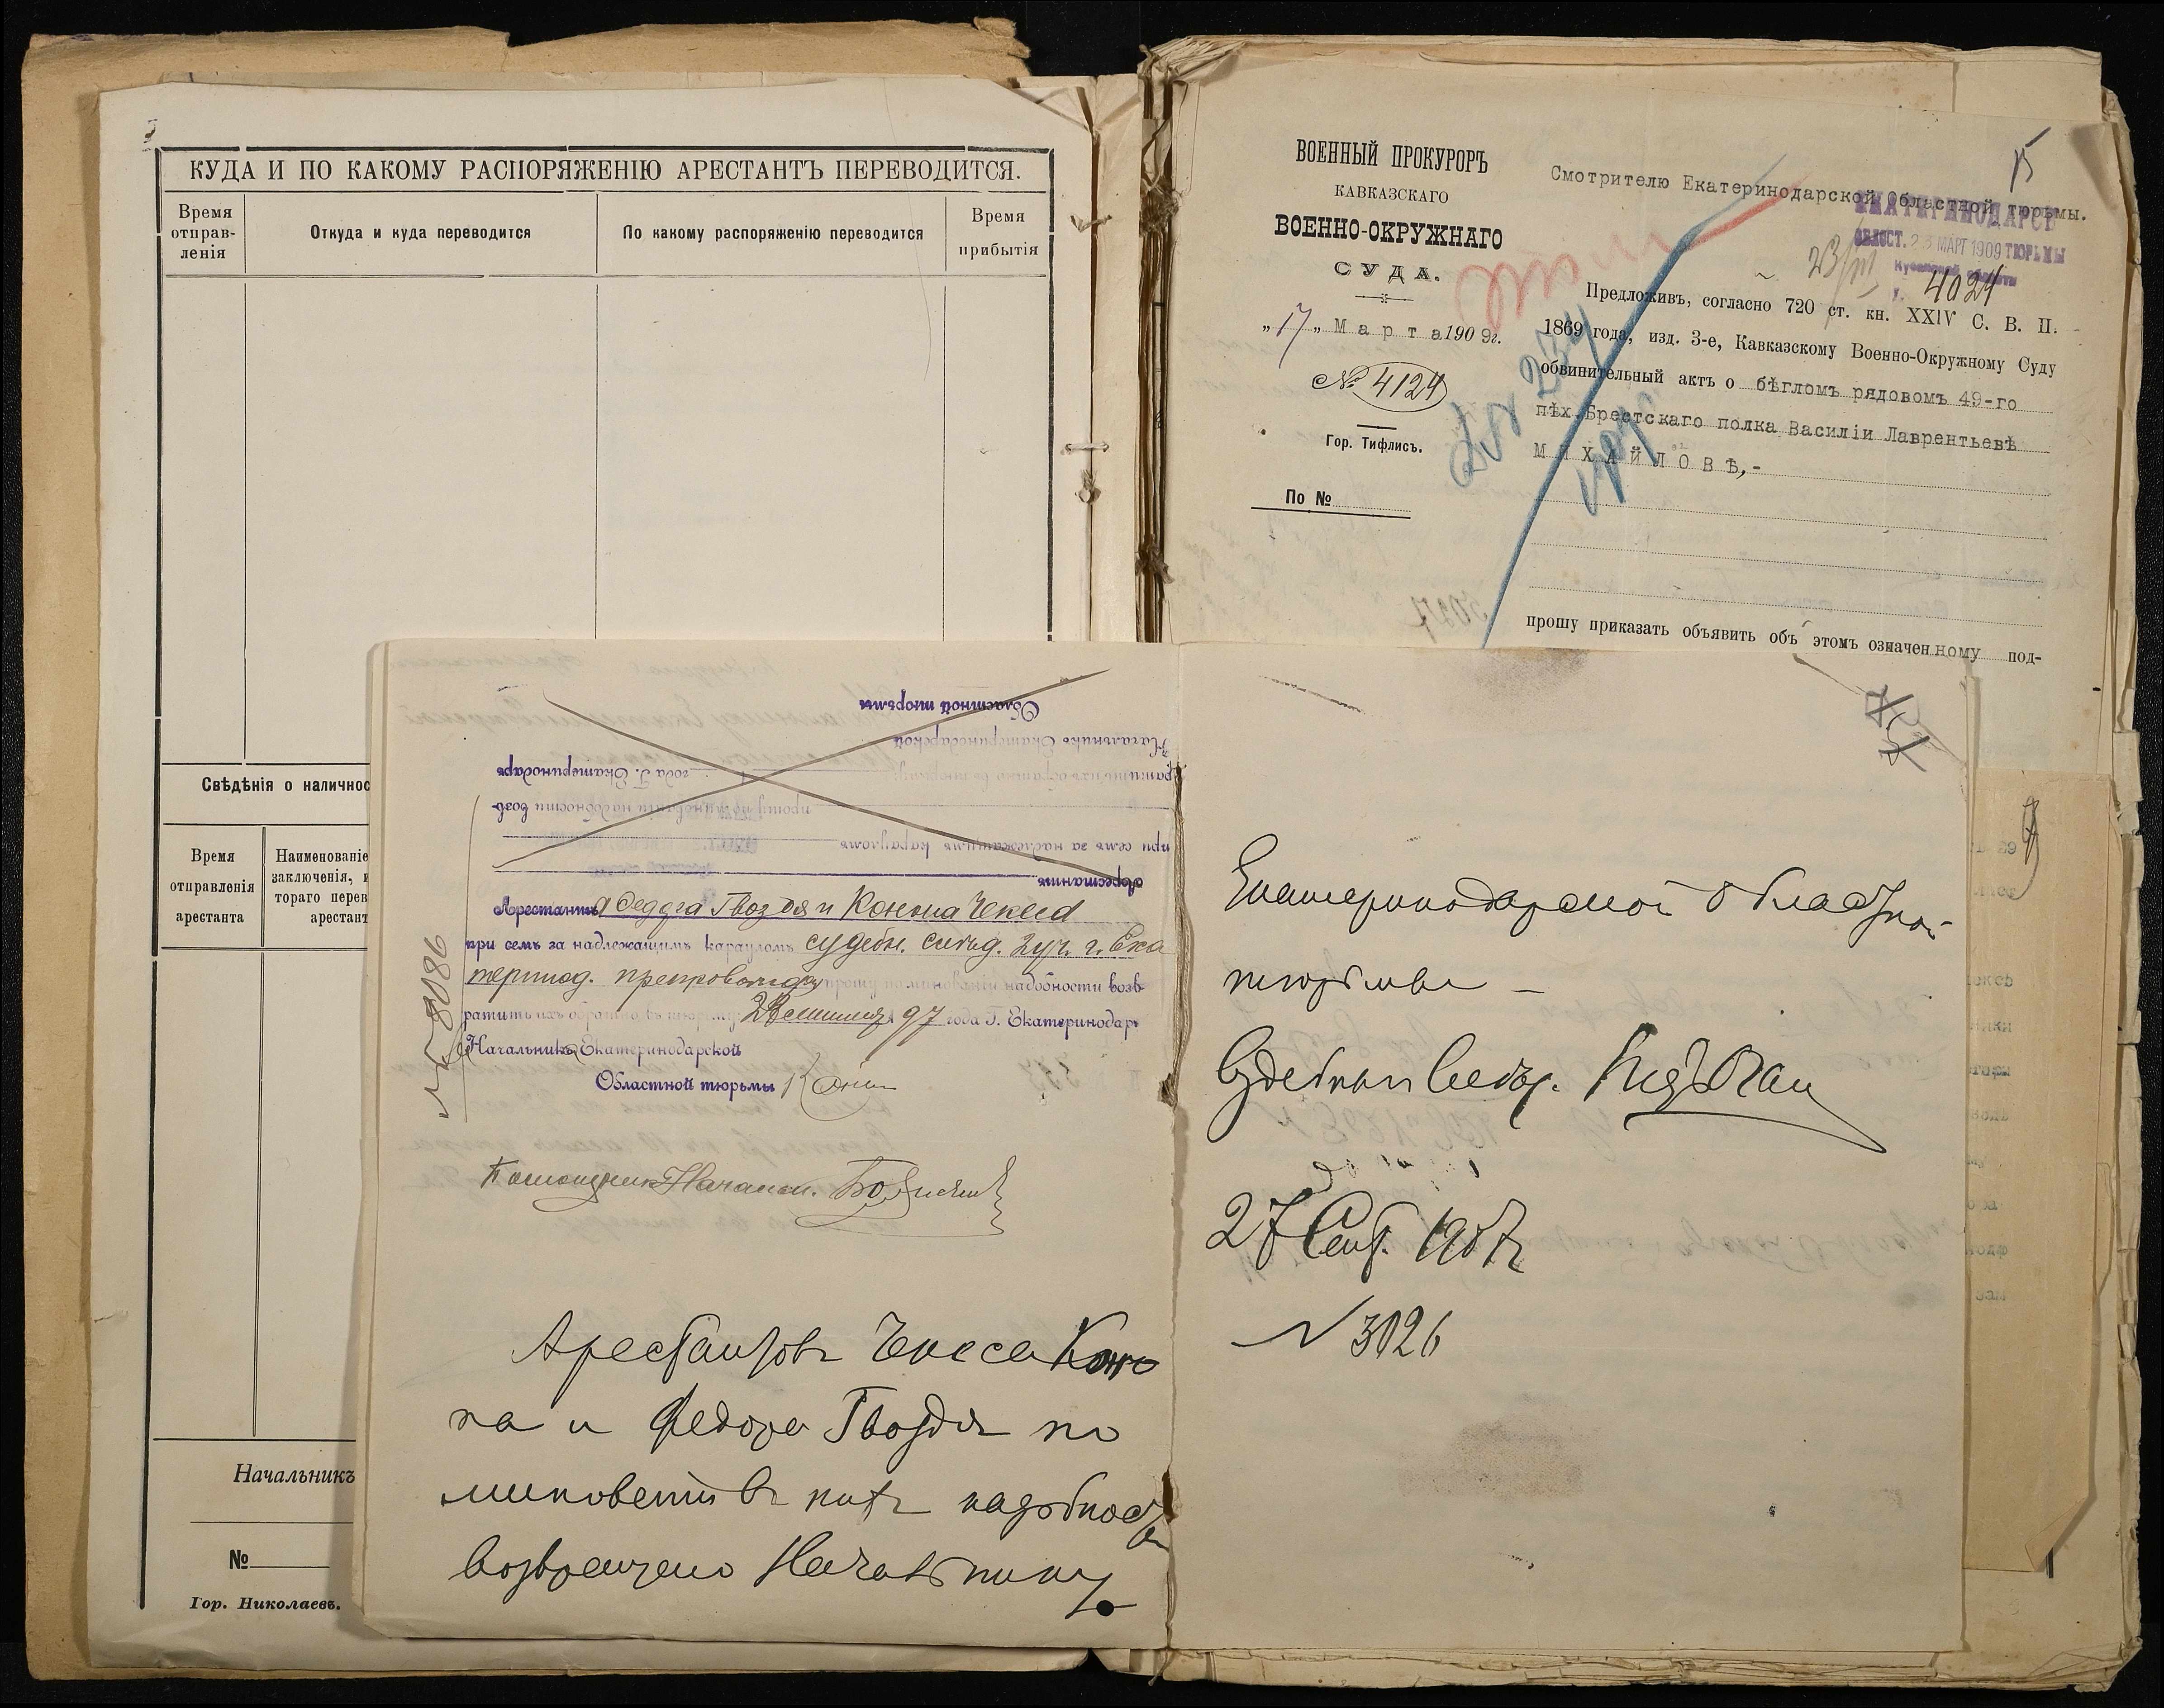 КУДА И ПО КАКОМУ РАСПОРЯЖЕНІЮ АРЕСТАНТЪ ПЕРЕВОДИТСЯ.
Время отправ- ленія
Откуда и куда переводится
По какому распоряженію переводится
Время прибытія
Свѣдѣнія о наличнос
Время отправленія арестанта
Наименованіе
заключенія, и
тораго перев
арестант
Начальникъ
№
Гор. Николаевъ.
ВОЕННЫЙ ПРОКУРОРЪ
КАВКАЗСКАГО
ВОЕННО-ОКРУЖНАГО
СУДА.
„17„ Марта 1909г.
№ 4124
Гор. Тифлисъ.
По №
15
Смотрителю Екатеринодарской Областной тюрьмы.
ЕКАТЕРИНОДАРСК
ОБЛАСТ. 23 МАРТ 1909 ТЮРЬМЫ
Кубанской области
23/III
4024
Предложивъ, согласно 720 ст. кн. XXIV С. В. П.
1869 года, изд. 3-е, Кавказскому Военно-Окружному Суду
обвинительный актъ о бѣгломъ рядовомъ 49-го
пѣх. Брестскаго полка Василіи Лаврентьевѣ
МИХАЙЛОВѢ,-
прошу приказать объявить объ этомъ означенному под-
Областной тюрьмы
Начальникъ Екатеринодарской
ратить ихъ обратно въ тюрьму года Г. Екатеринодаръ
прошу по минованіи надобности возв-
при семъ за надлежащимъ карауломъ
Арестантъ
Арестанта Федора Гвоздя и Конона Чекеса
при семъ за надлежащимъ карауломъ судебн. слѣд. 2 уч. г. Ека
теринод. препровождая прошу по минованіи надобности возв-
ратить ихъ обратно въ тюрьму 97 года Г. Екатеринодаръ
Начальникъ Екатеринодарской
Областной тюрьмы
№ 8086
Помощник Начальн.
Арестантовъ Чекеса Коно
на и Федора Гвоздя по
миновеніи въ нихъ надобности
возвращено Начальнику
Екатеринодарской Областной
тюрьмы —
Судебный Слѣдов.
27 Сент. 1907 г.
N 3026